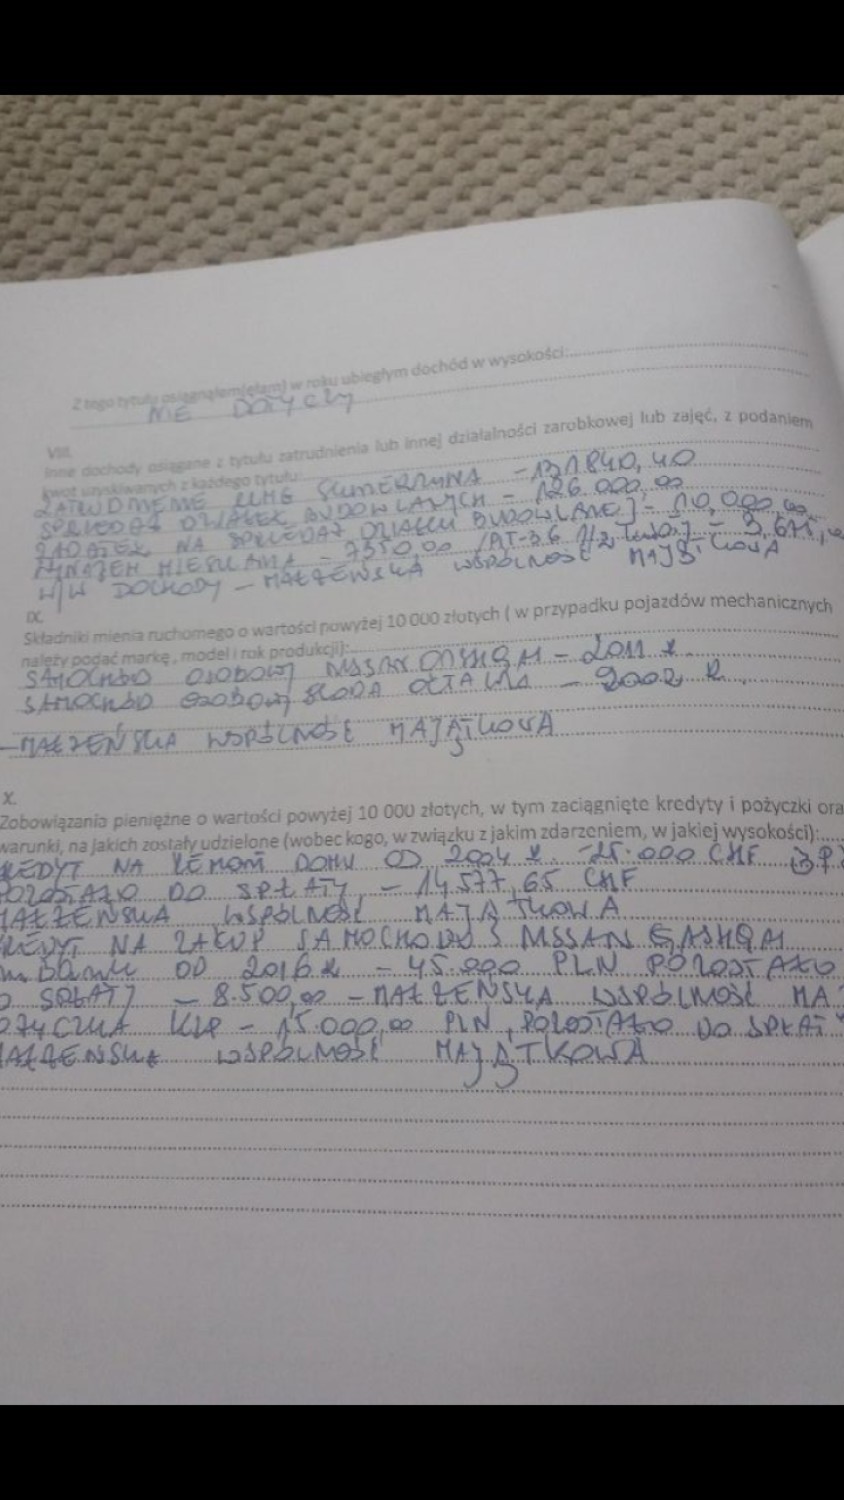 Z tego tytułu osiągnąłem(ęłam) w roku ubiegłym dochód w wysokości:
NIE DOTYCZY
VIII.
Inne dochody osiągane z tytułu zatrudnienia lub innej działalności zarobkowej lub zajęć, z podaniem
kwot uzyskiwanych z każdego tytułu:
ZATRUDNIENIE - 131840,40
SPRZEDAŻ DZIAŁEK BUDOWLANYCH - 126 000,00
ZADATEK NA SPRZEDAŻ DZIAŁKI BUDOWLANEJ - 10,000,00
WYNAJEM MIESZKANIA - 7350,00
W/W DOCHODY - MAŁŻEŃSKA WSPÓLNOŚĆ MAJĄTKOWA
IX.
Składniki mienia ruchomego o wartości powyżej 10 000 złotych ( w przypadku pojazdów mechanicznych
należy podać markę, model i rok produkcji):
SAMOCHÓD OSOBOWY NISSAN QASHQAI - 2011 R
SAMOCHÓD OSOBOWY SKODA OCTAVIA - 2002 R
- MAŁŻEŃSKA WSPÓLNOŚĆ MAJĄTKOWA
X.
Zobowiązania pieniężne o wartości powyżej 10 000 złotych, w tym zaciągnięte kredyty i pożyczki ora
warunki, na jakich zostały udzielone (wobec kogo, w związku z jakim zdarzeniem, w jakiej wysokości):
KREDYT NA REMONT DOMU OD 2004 R - 25.000 CHF
POZOSTAŁO DO SPŁATY - 14.577,65 CHF
MAŁŻEŃSKA WSPÓLNOŚĆ MAJĄTKOWA
KREDYT NA ZAKUP SAMOCHODU NISSAN QASHQAI
OD 2016 R - 45.000 PLN POZOSTAŁO
DO SPŁATY - 8.500,00 - MAŁŻEŃSKA WSPÓLNOŚĆ MA
POŻYCZKA - 15.000,00 PLN, POZOSTAŁO DO SPŁATY
MAŁŻEŃSKA WSPÓLNOŚĆ MAJĄTKOWA